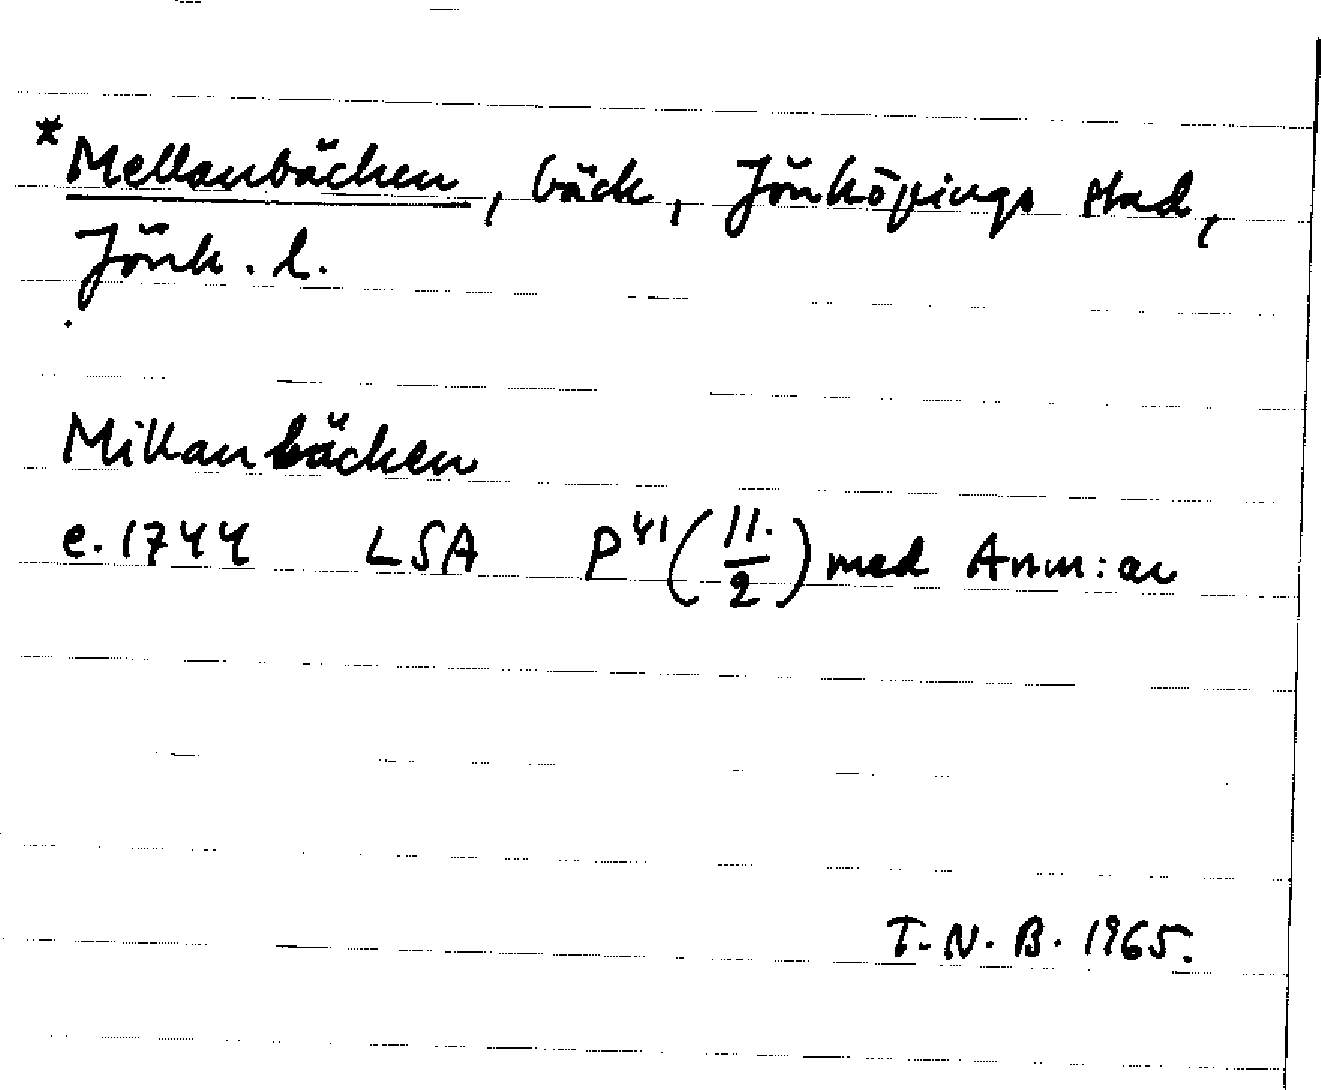 *Mellanbäcken, bäck, Jönköpings stad,
Jönk. l.
Millanbäcken
e. 1744 LSA P41 (11./2) med Anm:ar
T.N.B. 1965.